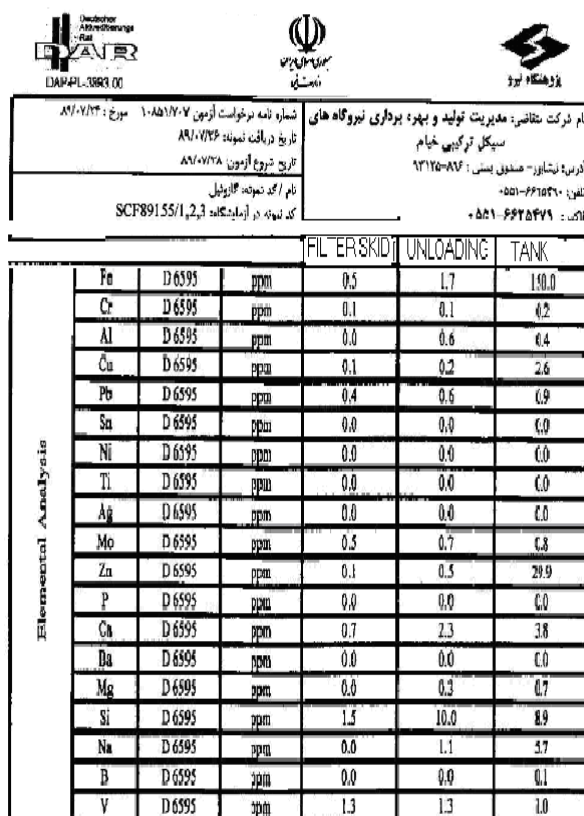 Deutscher
Akkreditierungs
Rat
DAR
DAP-PL-3893.00
جمهوری اسلامی ایران
وزارت نیرو
پژوهشگاه نیرو
نام شرکت متقاضی: مدیریت تولید و بهره برداری نیروگاه های
سیکل ترکیبی خیام
آدرس: نیشابور- صندوق پستی : ۸۹۶-۹۳۱۲۵
تلفن: ۶۶۱۵۴۹۰-۰۵۵۱
فاکس: ۶۶۲۵۴۷۹-۰۵۵۱
شماره نامه درخواست آزمون ۱۰۸۵۱/۷۰۷ مورخ : ۸۹/۰۷/۲۴
تاریخ دریافت نمونه: ۸۹/۰۷/۲۶
تاریخ شروع آزمون: ۸۹/۰۷/۲۸
نام /کد نمونه: گازوئیل
کد نمونه در آزمایشگاه: SCF89155/1,2,3
FILTER SKID UNLOADING TANK
Elemental Analysis
Fe D 6595 ppm 0.5 1.7 130.0
Cr D 6595 ppm 0.1 0.1 0.2
Al D 6595 ppm 0.0 0.6 0.4
Cu D 6595 ppm 0.1 0.2 2.6
Pb D 6595 ppm 0.4 0.6 0.9
Sn D 6595 ppm 0.0 0.0 0.0
Ni D 6595 ppm 0.0 0.0 0.0
Ti D 6595 ppm 0.0 0.0 0.0
Ag D 6595 ppm 0.0 0.0 0.0
Mo D 6595 ppm 0.5 0.7 0.8
Zn D 6595 ppm 0.1 0.5 29.9
P D 6595 ppm 0.0 0.0 0.0
Ca D 6595 ppm 0.7 2.3 3.8
Ba D 6595 ppm 0.0 0.0 0.0
Mg D 6595 ppm 0.0 0.3 0.7
Si D 6595 ppm 1.5 10.0 8.9
Na D 6595 ppm 0.0 1.1 5.7
B D 6595 ppm 0.0 0.0 0.1
V D 6595 ppm 1.3 1.3 1.0